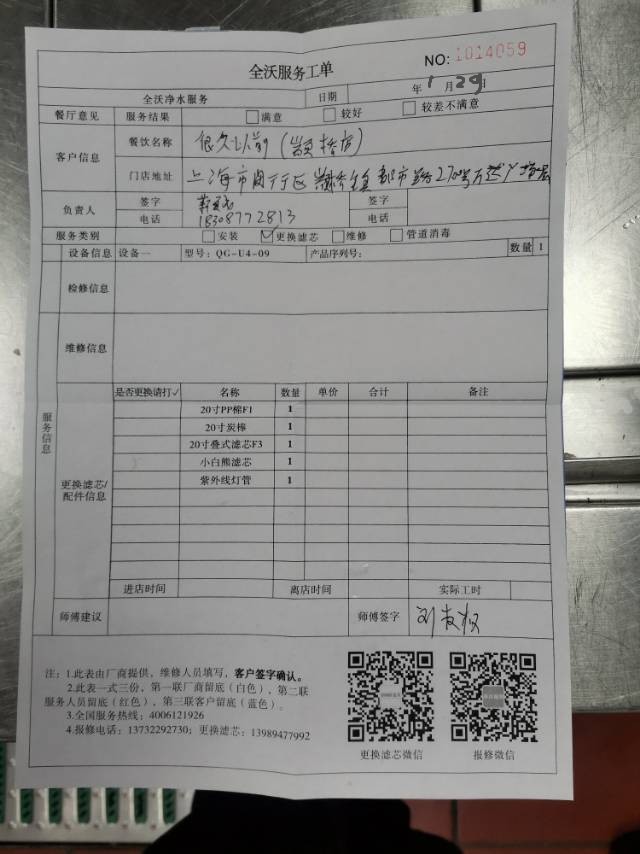 全沃服务工单
NO: 1014059
全沃净水服务 日期 年 1 月 29
餐厅意见 服务结果 满意 较好 较差不满意
客户信息 餐饮名称 很久以前
门店地址 上海市闵行区 都市路
负责人 签字 签字
电话 18308772813 电话
服务类别 安装 ✓更换滤芯 维修 管道消毒
设备信息 设备一 型号：QG-U4-09 产品序列号： 数量 1
检修信息
服务信息
维修信息
更换滤芯/配件信息
是否更换请打✓ 名称 数量 单价 合计 备注
20寸PP棉F1 1
20寸炭棒 1
20寸叠式滤芯F3 1
小白熊滤芯 1
紫外线灯管 1
进店时间 离店时间 实际工时
师傅建议 师傅签字
注：1.此表由厂商提供，维修人员填写，客户签字确认。
2.此表一式三份，第一联厂商留底（白色），第二联
服务人员留底（红色），第三联客户留底（蓝色）。
3.全国服务热线：4006121926
4.报修电话：13732292730；更换滤芯：13989477992
更换滤芯微信 报修微信